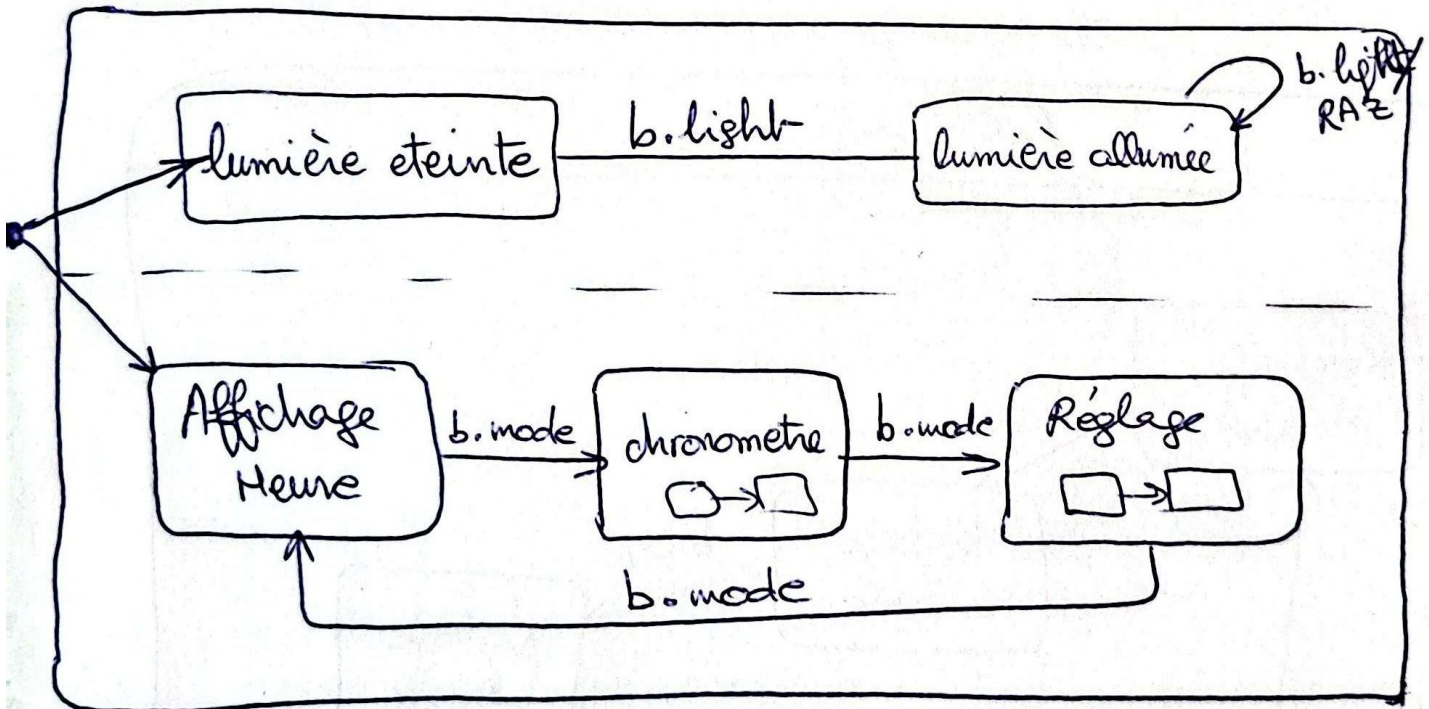 b.light/
RAZ
lumière eteinte
b.light
lumière allumée
Affichage
Heure
b.mode
chronometre
b.mode
Réglage
b.mode